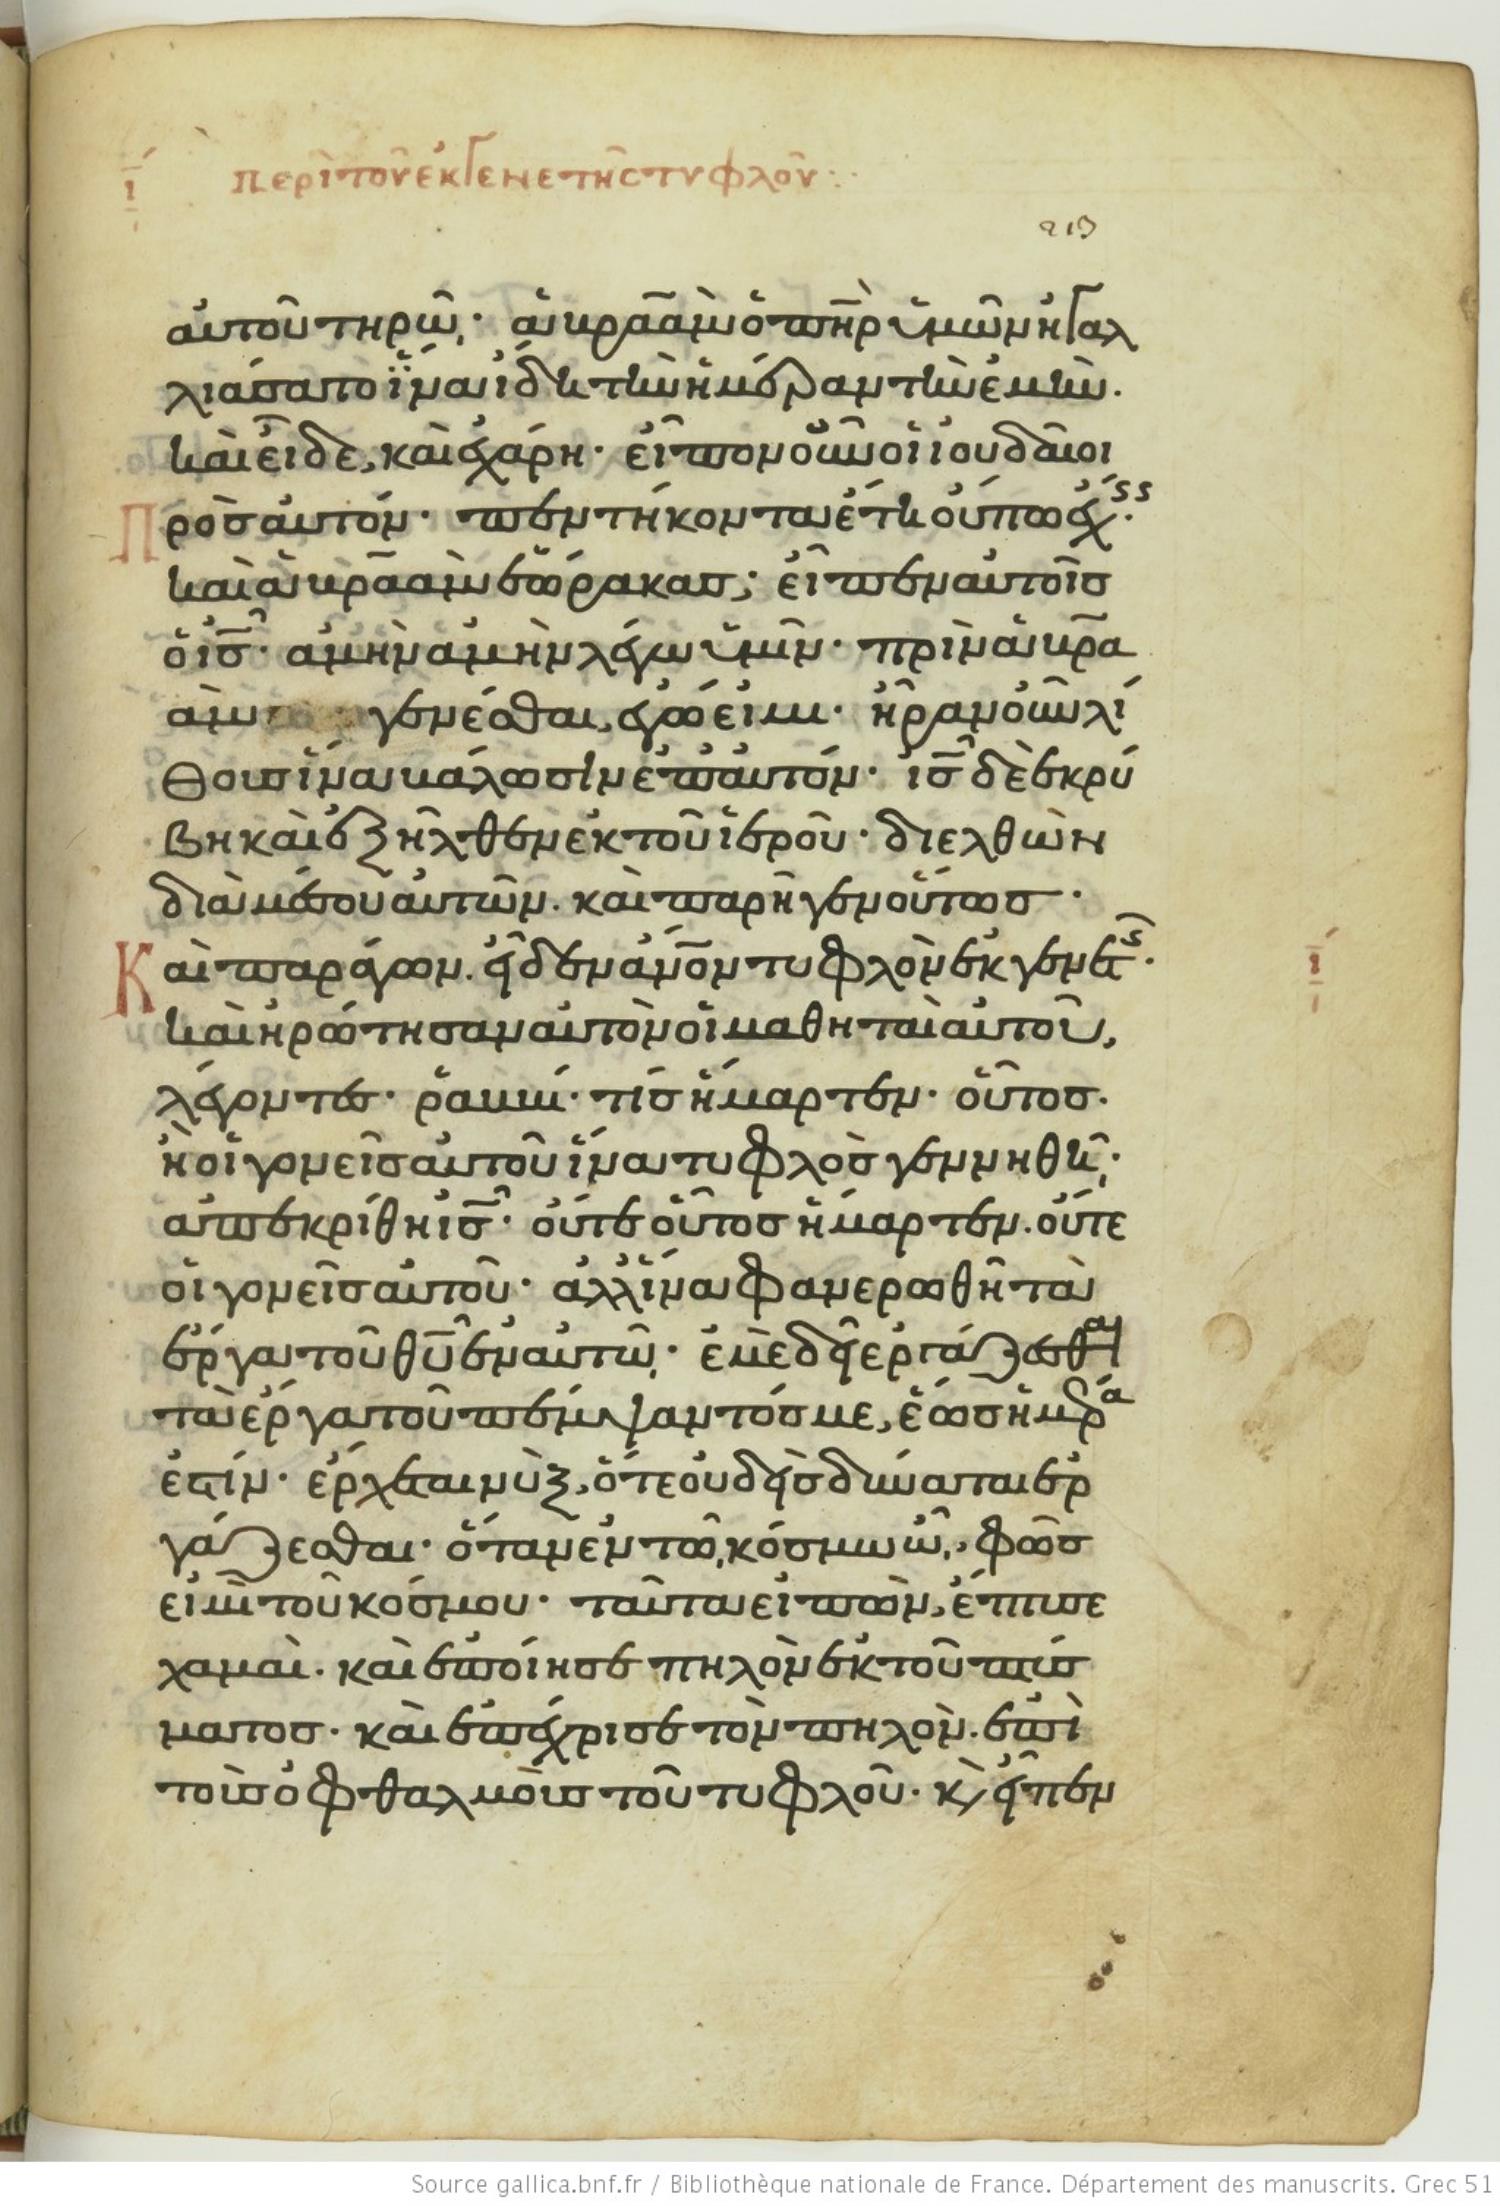 ι περὶ τοῦ ἐκ γενετῆς τυφλοῦ:
αὐτοῦ τηρῶ· ἀβραὰμ ὁ π̅η̅ρ ὑμῶν ἠγαλ
λιάσατο ἵνα ἴδη τὴν ἡμέραν τὴν ἐμήν.
καὶ εἶδε, καὶ ἐχάρη· εἶπον οὖν οἱ ἰουδαῖοι
Πρὸς αὐτόν· πεντήκοντα ἔτη οὔπω ἔχεις·
καὶ ἀβραὰμ ἑώρακας; εἶπεν αὐτοῖς
ὁ ι̅ς̅· ἀμὴν ἀμὴν λέγω ὑμῖν· πρὶν ἀβρα
ὰμ γενέσθαι, ἐγώ εἰμι· ἦραν οὖν λί
θους ἵνα βάλωσιν ἐπ αὐτόν· ι̅ς̅ δὲ ἐκρύ
βη καὶ ἐξῆλθεν ἐκ τοῦ ἱεροῦ· διελθὼν
διὰ μέσου αὐτῶν. καὶ παρῆγεν οὕτως·
Καὶ παράγων. εἶδεν ἄ̅ν̅ο̅ν τυφλὸν ἐκ γενετῆς· ι
καὶ ἠρώτησαν αὐτὸν οἱ μαθηταὶ αὐτοῦ,
λέγοντες· ῥαββί· τίς ἥμαρτεν· οὗτος.
ἢ οἱ γονεῖς αὐτοῦ ἵνα τυφλὸς γεννηθῆ;
ἀπεκρίθη ι̅ς̅· οὔτε οὗτος ἥμαρτεν. οὔτε
οἱ γονεῖς αὐτοῦ· ἀλλ ἵνα φανερωθῆ τὰ
ἔργα τοῦ θ̅υ̅ ἐν αὐτῶ· ἐμὲ δεῖ ἐργάζεσθαι
τὰ ἔργα τοῦ πέμψαντός με, ἕως ἡμέρα
ἐστίν· ἔρχεται νὺξ, ὅτε οὐδεὶς δύναται ἐρ
γάζεσθαι· ὅταν ἐν τῶ κόσμω ὦ, φῶς
εἰμὶ τοῦ κόσμου· ταῦτα εἰπὼν, ἔπτυσε
χαμαὶ. καὶ ἐποίησε πηλὸν ἐκ τοῦ πτύσ
ματος· καὶ ἐπέχρισε τὸν πηλὸν. ἐπὶ
τοὺς ὀφθαλμοὺς τοῦ τυφλοῦ· κ̀ εἶπεν
Source gallica.bnf.fr / Bibliothèque nationale de France. Département des manuscrits. Grec 51